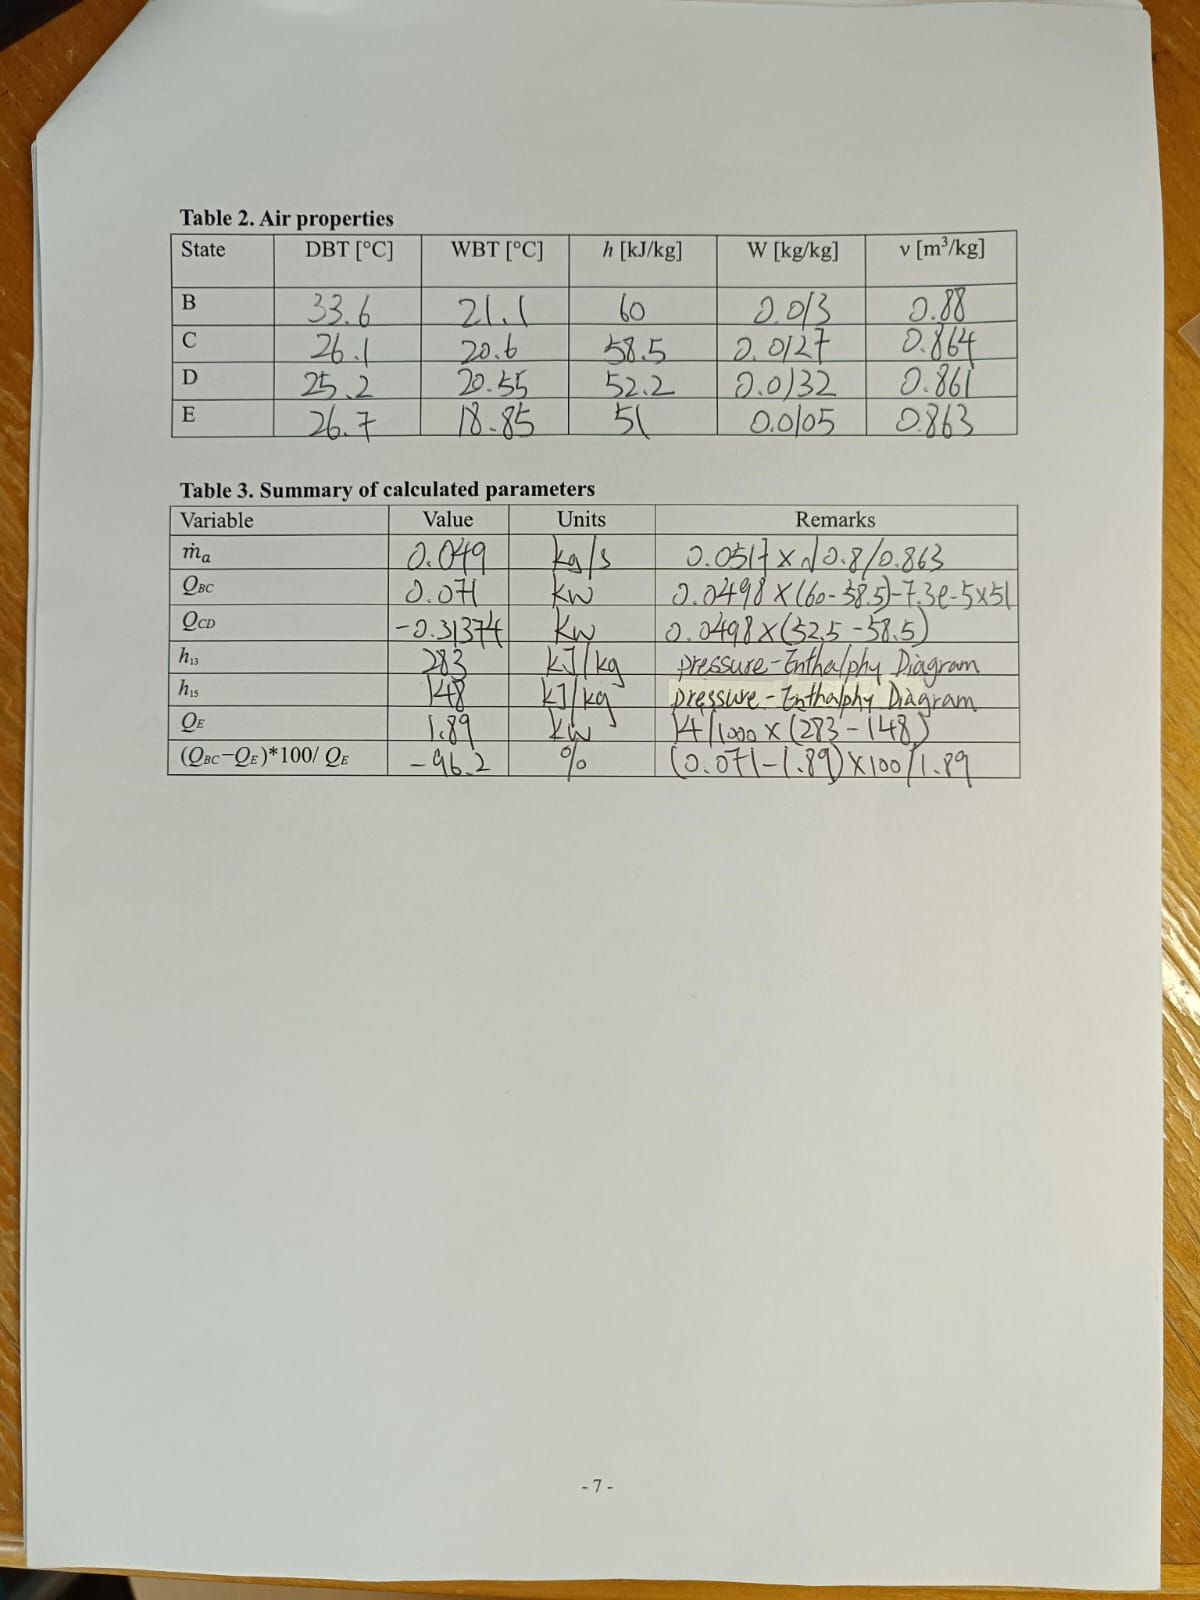 Table 2. Air properties
State DBT [°C] WBT [°C] h [kJ/kg] W [kg/kg] ν [m³/kg]
B 33.6 21.1 60 0.013 0.88
C 26.1 20.6 58.5 0.0127 0.864
D 25.2 20.55 52.2 0.0132 0.861
E 26.7 18.85 51 0.0105 0.863
Table 3. Summary of calculated parameters
Variable Value Units Remarks
ṁa 0.049 kg/s 0.0517 x √0.8/0.863
QBC 0.071 kw 0.0498 x (60-58.5)-7.3e-5x51
QCD -0.31374 kw 0.0498 x (52.5-58.5)
h13 283 kJ/kg pressure-Enthalphy Diagram
h15 148 kJ/kg pressure-Enthalphy Diagram
QE 1.89 kw 14/1000 x (283-148)
(QBC−QE)*100/ QE -96.2 % (0.071-1.89)x100/1.89
- 7 -